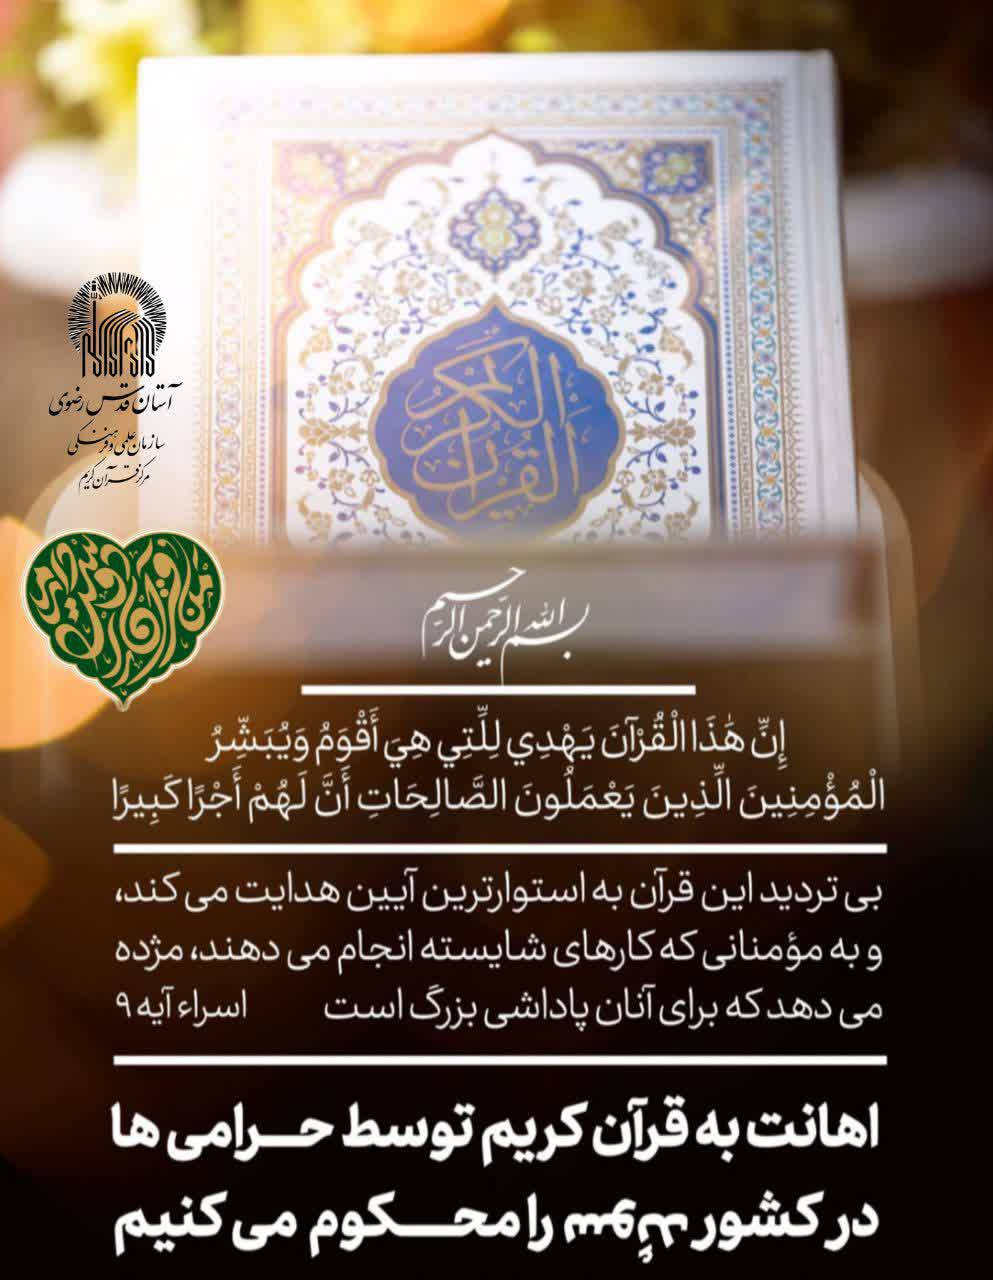 القرآن الکریم
آستان قدس رضوی
سازمان علمی و فرهنگی
مرکز قرآن کریم
من قرآن را دوست دارم
بسم الله الرحمن الرحیم
إِنَّ هَٰذَا الْقُرْآنَ يَهْدِي لِلَّتِي هِيَ أَقْوَمُ وَيُبَشِّرُ
الْمُؤْمِنِينَ الَّذِينَ يَعْمَلُونَ الصَّالِحَاتِ أَنَّ لَهُمْ أَجْرًا كَبِيرًا
بی تردید این قرآن به استوارترین آیین هدایت می کند،
و به مؤمنانی که کارهای شایسته انجام می دهند، مژده
می دهد که برای آنان پاداشی بزرگ است اسراء آیه ۹
اهانت به قرآن کریم توسط حـــرامی ها
در کشور سوئد را محـــکوم می کنیم